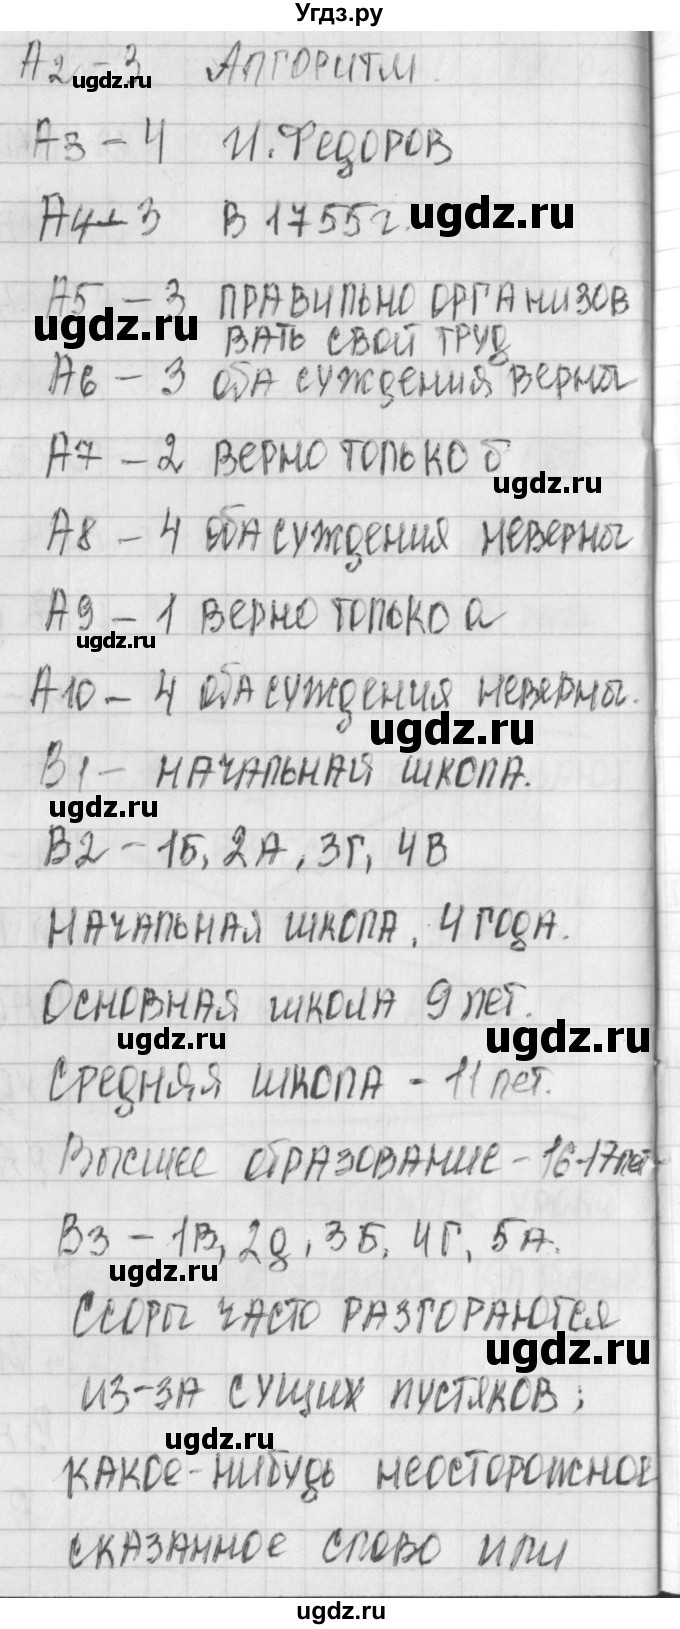 Угдз.ру
А2 - 3 Алгоритм.
ugdz.ru
А3 - 4 И. Федоров
А4 - 3 В 1755 г.
ugdz.ru
А5 - 3 правильно организов
ugdz.ru
вать свой труд
А6 - 3 оба суждения верны
А7 - 2 верно только б
ugdz.ru
А8 - 4 оба суждения неверны
А9 - 1 верно только а
ugdz.ru
А10 - 4 оба суждения неверны.
ugdz.ru
В1 - начальная школа.
ugdz.ru
В2 - 1Б, 2А, 3Г, 4В
Начальная школа, 4 года.
Основная школа 9 лет.
ugdz.ru
ugdz.ru
Средняя школа - 11 лет.
Высшее образование - 16-17 лет
В3 - 1В, 2д, 3Б, 4Г, 5А.
ugdz.ru
Ссоры часто разгораются
ugdz.ru
из-за сущих пустяков;
ugdz.ru
какое-нибудь неосторожное
сказанное слово или
ugdz.ru